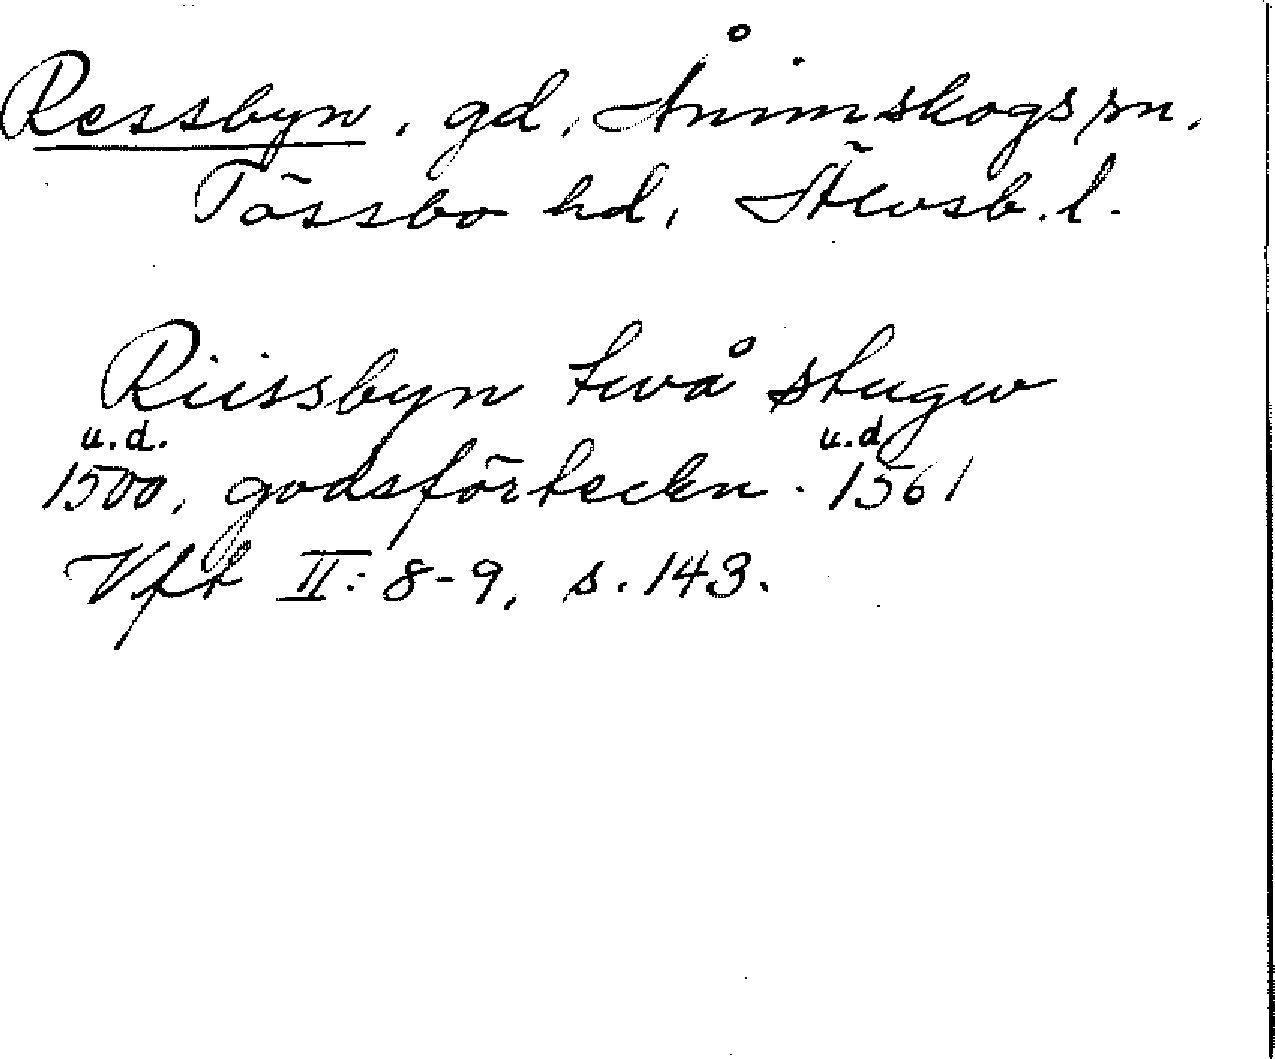 Ressbyn, gd, Ånimskogs sn,
Tössbo hd, Älvsb. l.
Riissbyn två stugur
u.d. u.d.
1500, godsförteckn. 1561
Vft II: 8-9, s. 143.